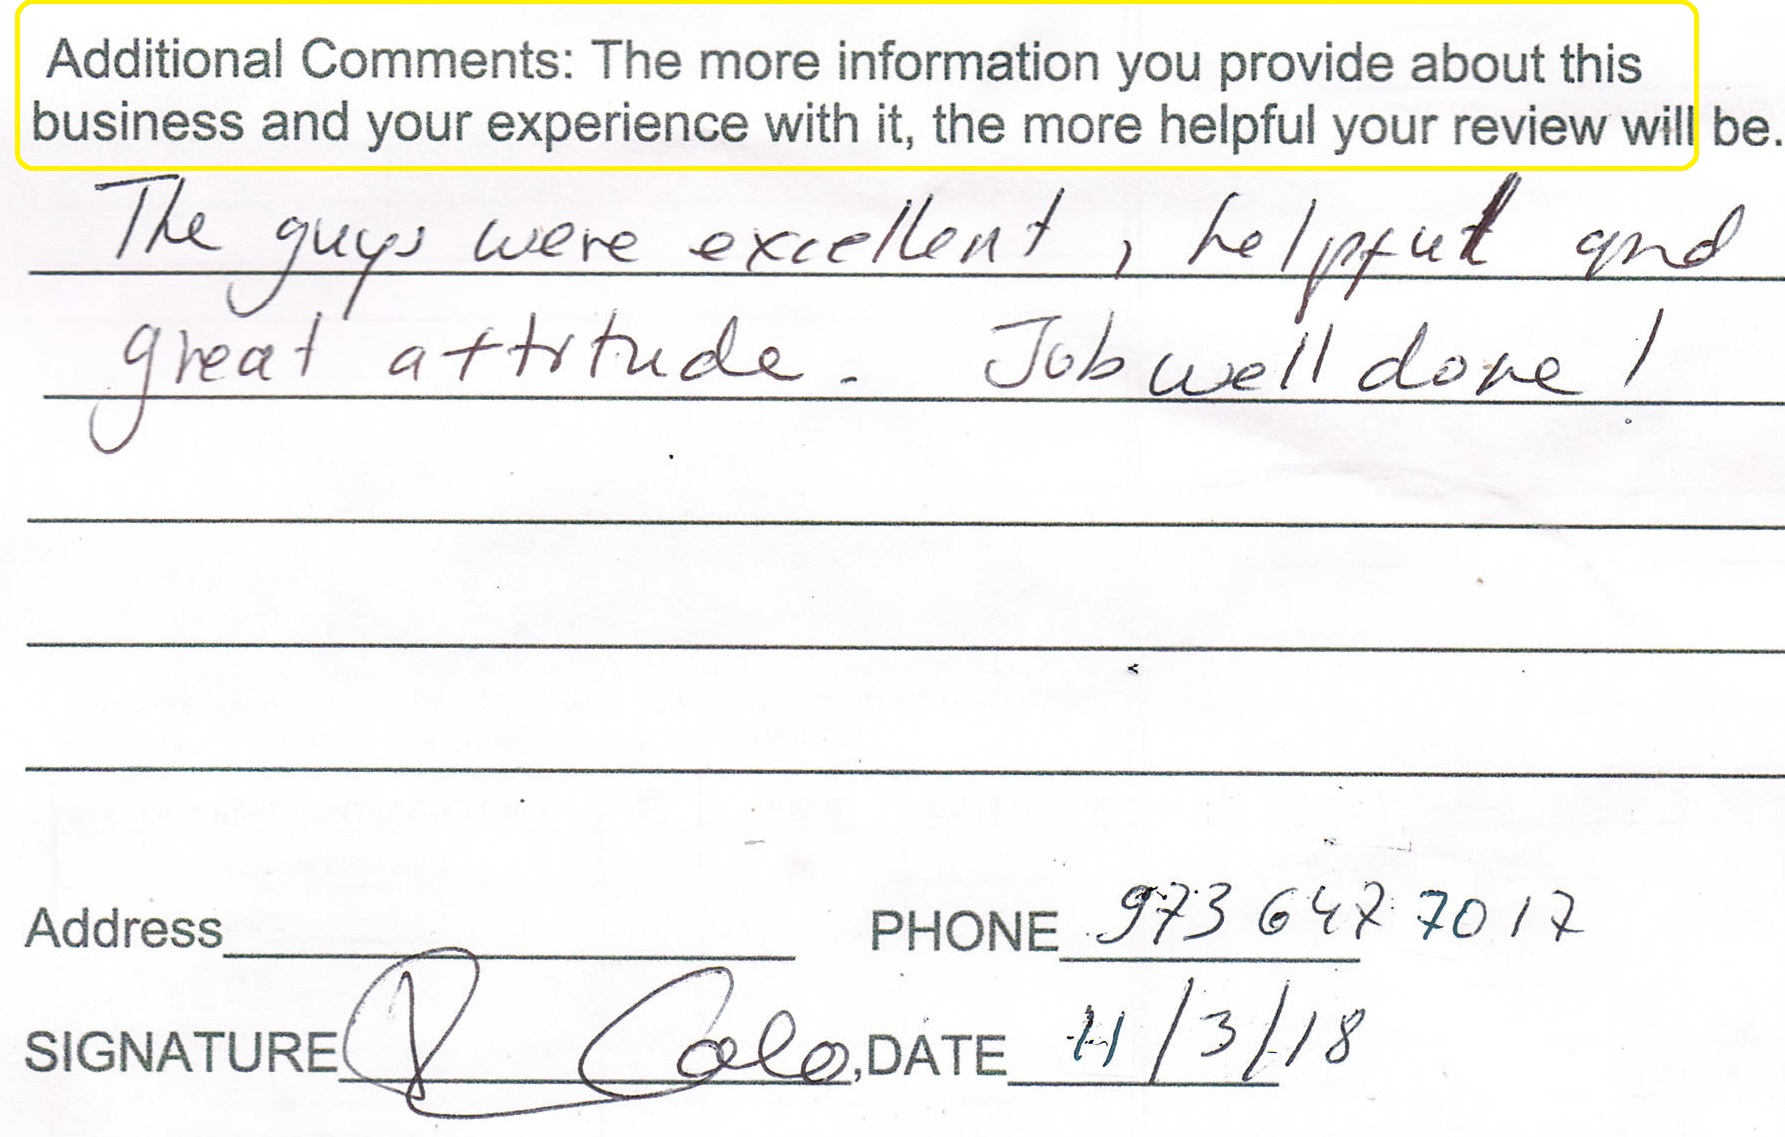 Additional Comments: The more information you provide about this
business and your experience with it, the more helpful your review will be.
The guys were excellent, helpful and
great attitude. Job well done!
Address PHONE 973 647 7017
SIGNATURE DATE 11/3/18